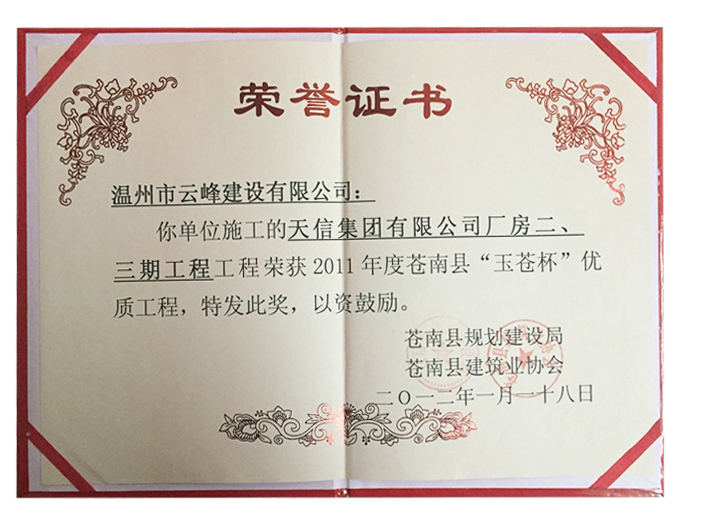 荣誉证书
温州市云峰建设有限公司：
你单位施工的天信集团有限公司厂房二、
三期工程工程荣获2011年度苍南县“玉苍杯”优
质工程，特发此奖，以资鼓励。
苍南县规划建设局
苍南县建筑业协会
二〇一二年一月一十八日